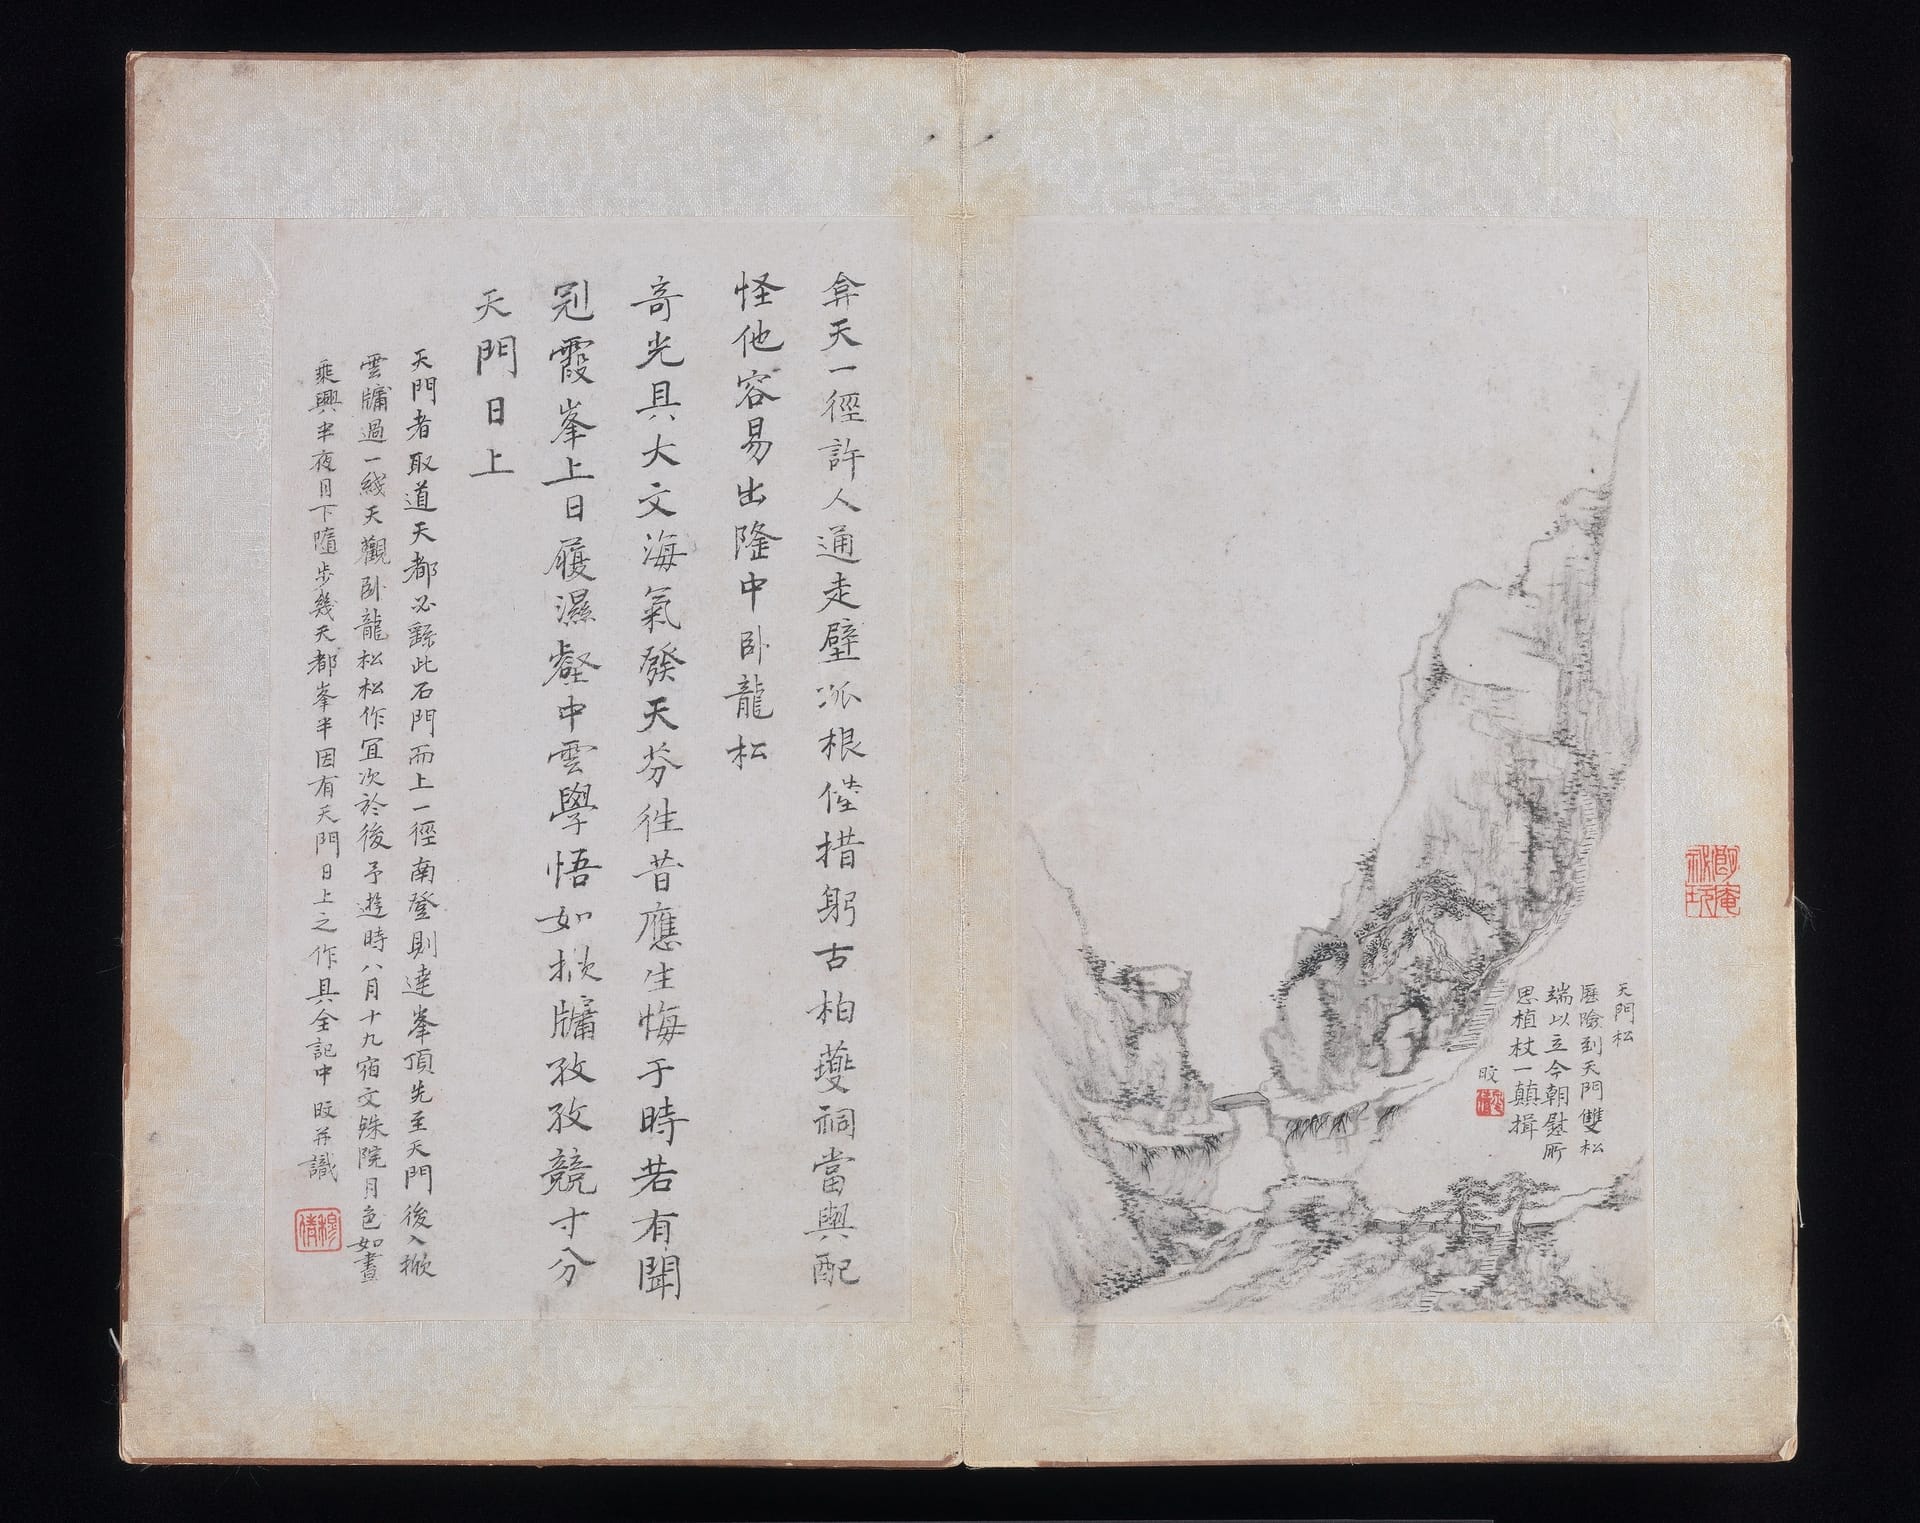 天門松
歷險到天門雙松
端以立今朝慰所
思植杖一顛揖
旼
弇天一徑許人通走壁孤根措躬古柏夔祠當與配
怪他容易出隆中臥龍松
奇光具大文海氣發天芬徃昔應生悔于時若有聞
冠霞峯上日履濕壑中雲學悟如掀牗孜孜競寸分
天門日上
天門者取道天都必繇此石門而上一徑南登則達峯頂先至天門後入掀
雲牗過一綫天觀臥龍松松作宜次於後予遊時八月十九宿文殊院月色如晝
乘興半夜月下隨步幾天都峯半因有天門日上之作具全記中 旼并識
穆倩